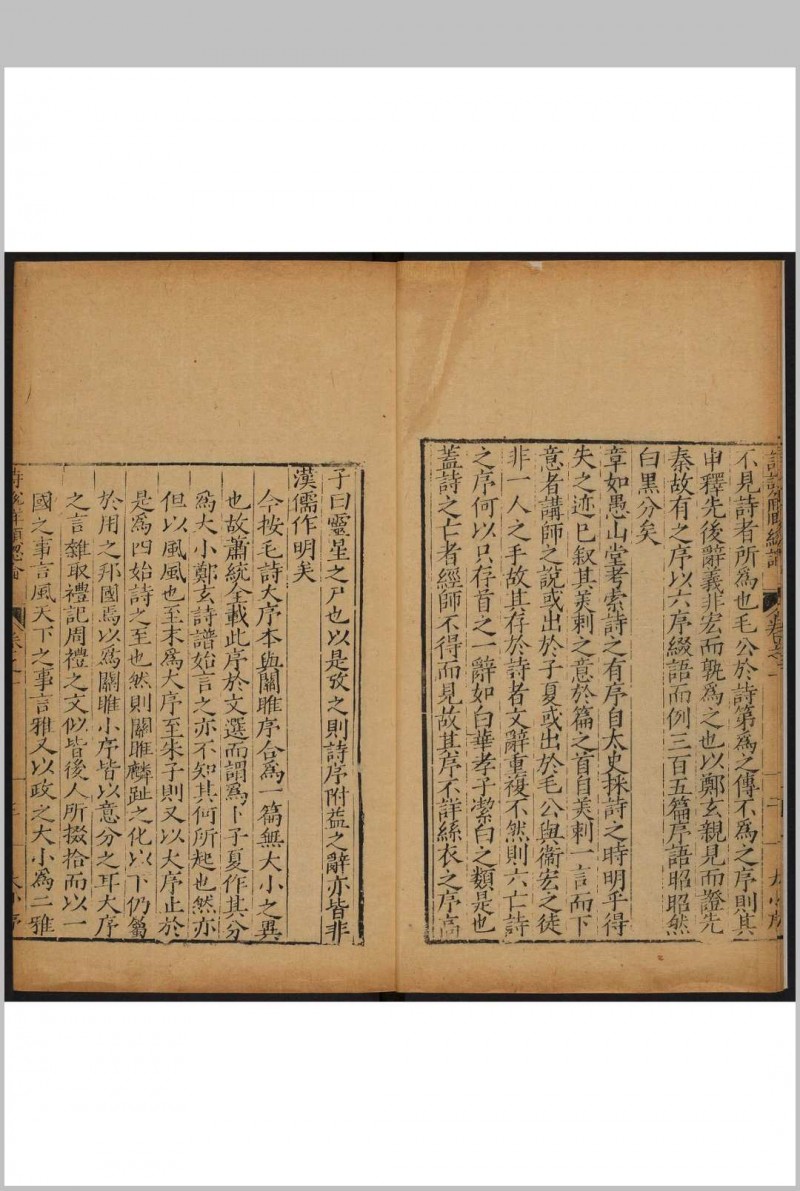 不見詩者所爲也毛公於詩第爲之傳不爲之序則其
申釋先後辭義非宏而孰爲之也以鄭玄親見而證先
秦故有之序以六序綴語而例三百五篇序語昭昭然
白黒分矣
章如愚山堂考索詩之有序自太史採詩之時明乎得
失之迹已叙其美刺之意於篇之首自美刺一言而下
意者講師之說或出於子夏或出於毛公與衞宏之徒
非一人之手故其存於詩者文辭重複不然則六亡詩
之序何以只存首之一辭如白華孝子潔白之類是也
蓋詩之亡者經師不得而見故其序不詳絲衣之序高
子曰靈星之尸也以是攷之則詩序附益之辭亦皆非
漢儒作明矣
今按毛詩大序本與關雎序合爲一篇無大小之異
也故蕭統全載此序於文選而謂爲卜子夏作其分
爲大小鄭玄詩譜始言之亦不知其何所起也然亦
但以風風也至末爲大序至朱子則又以大序止於
是爲四始詩之至也然則關雎麟趾之化以下仍屬
於用之邦國焉以爲關雎小序皆以意分之耳大序
之言雜取禮記周禮之文似皆後人所掇拾而以一
國之事言風天下之事言雅又以政之大小爲二雅